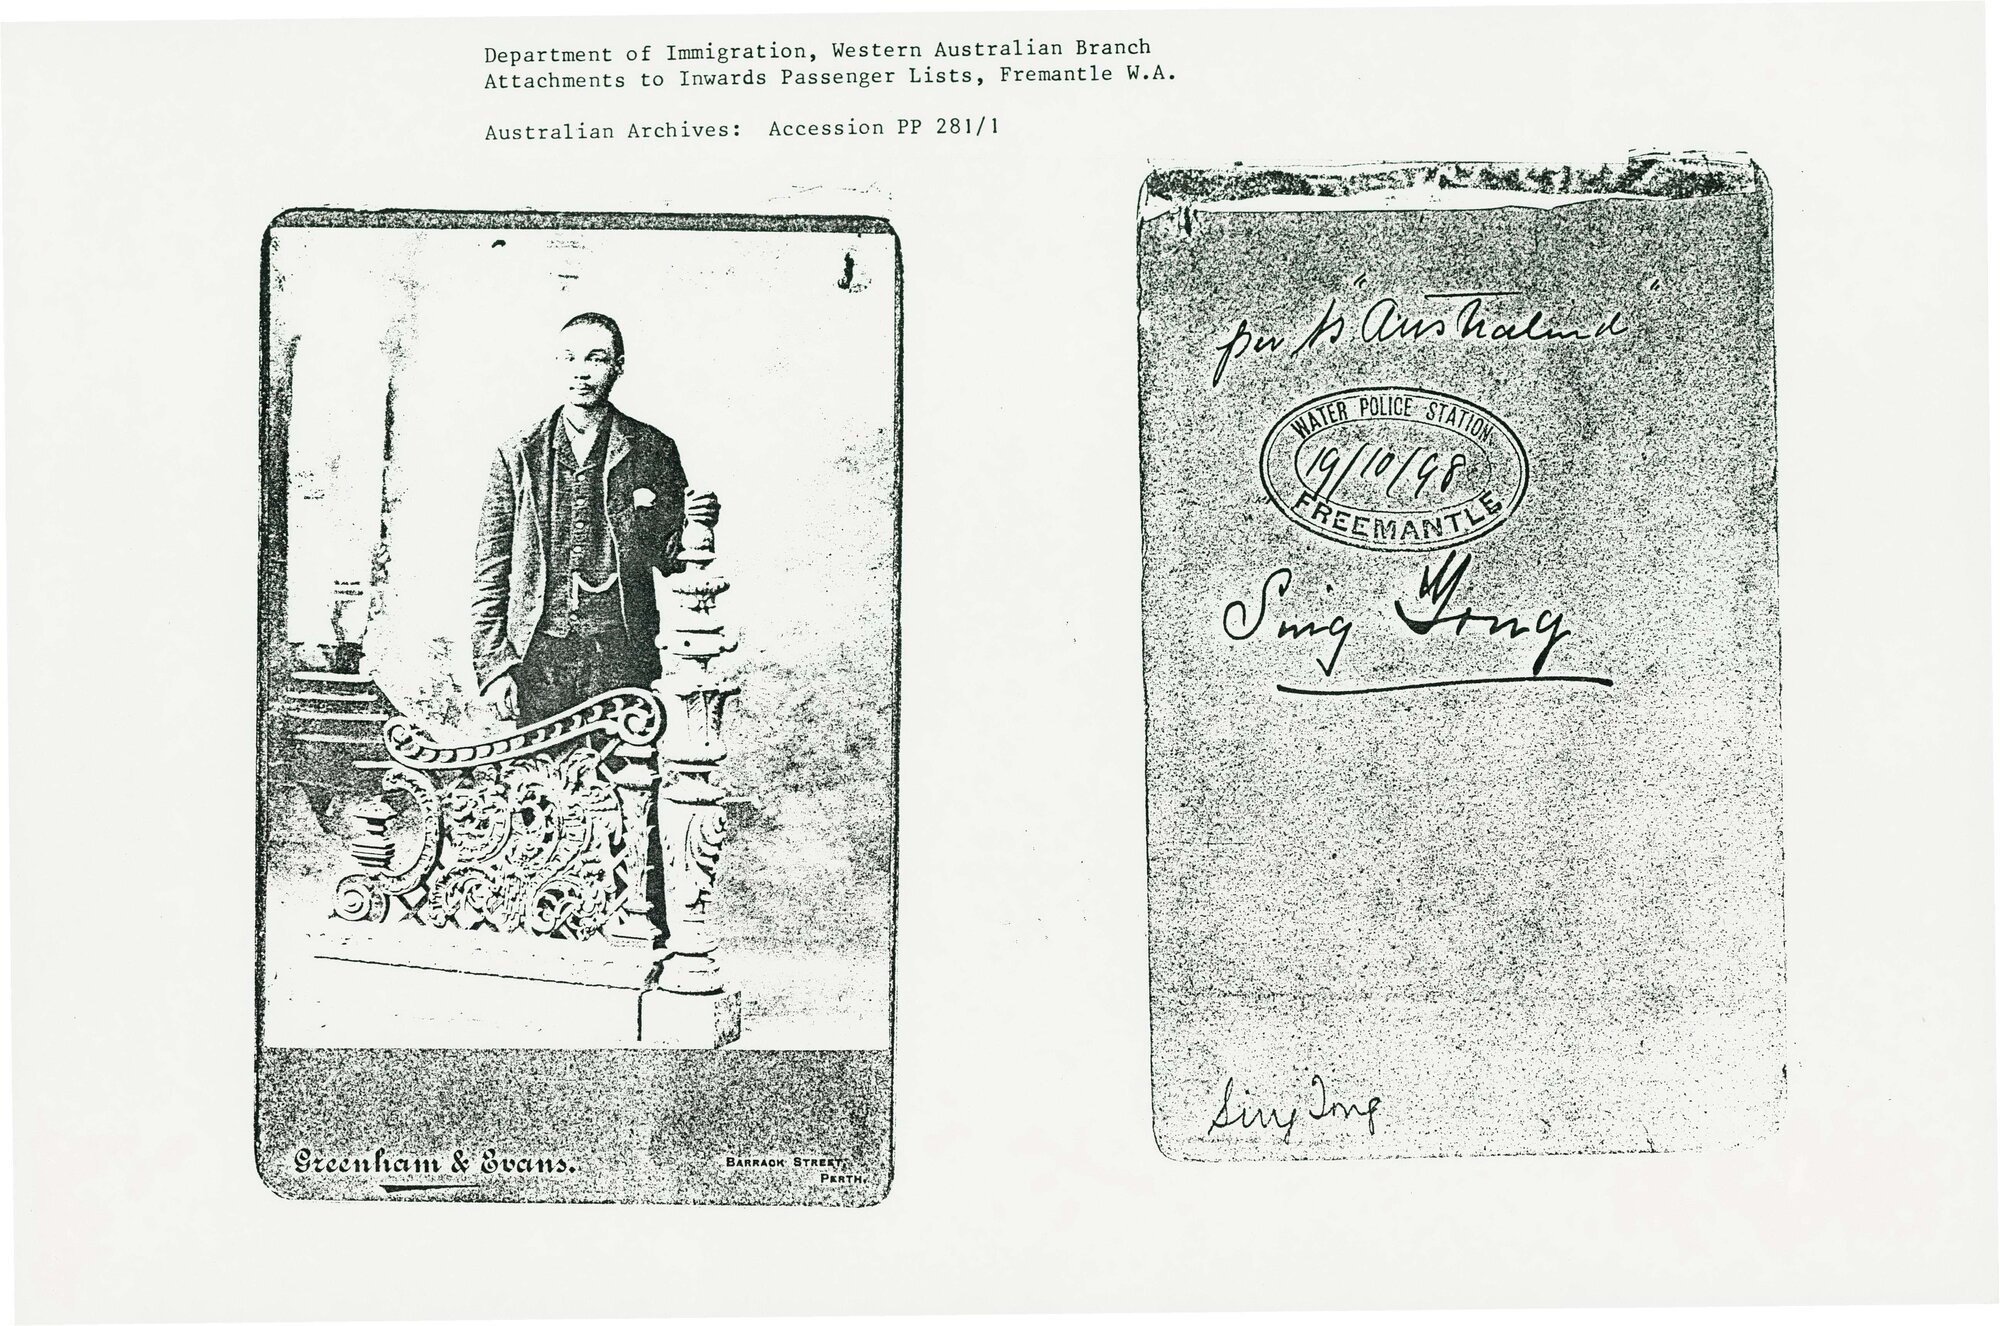 Department of Immigration, Western Australian Branch
Attachments to Inwards Passenger Lists, Fremantle W.A.
Australian Archives: Accession PP 281/1
Greenham & Evans.
BARRACK STREET,
PERTH.
per ss "Australind"
WATER POLICE STATION
19/10/98
FREEMANTLE
Sing Yong
Sing Yong